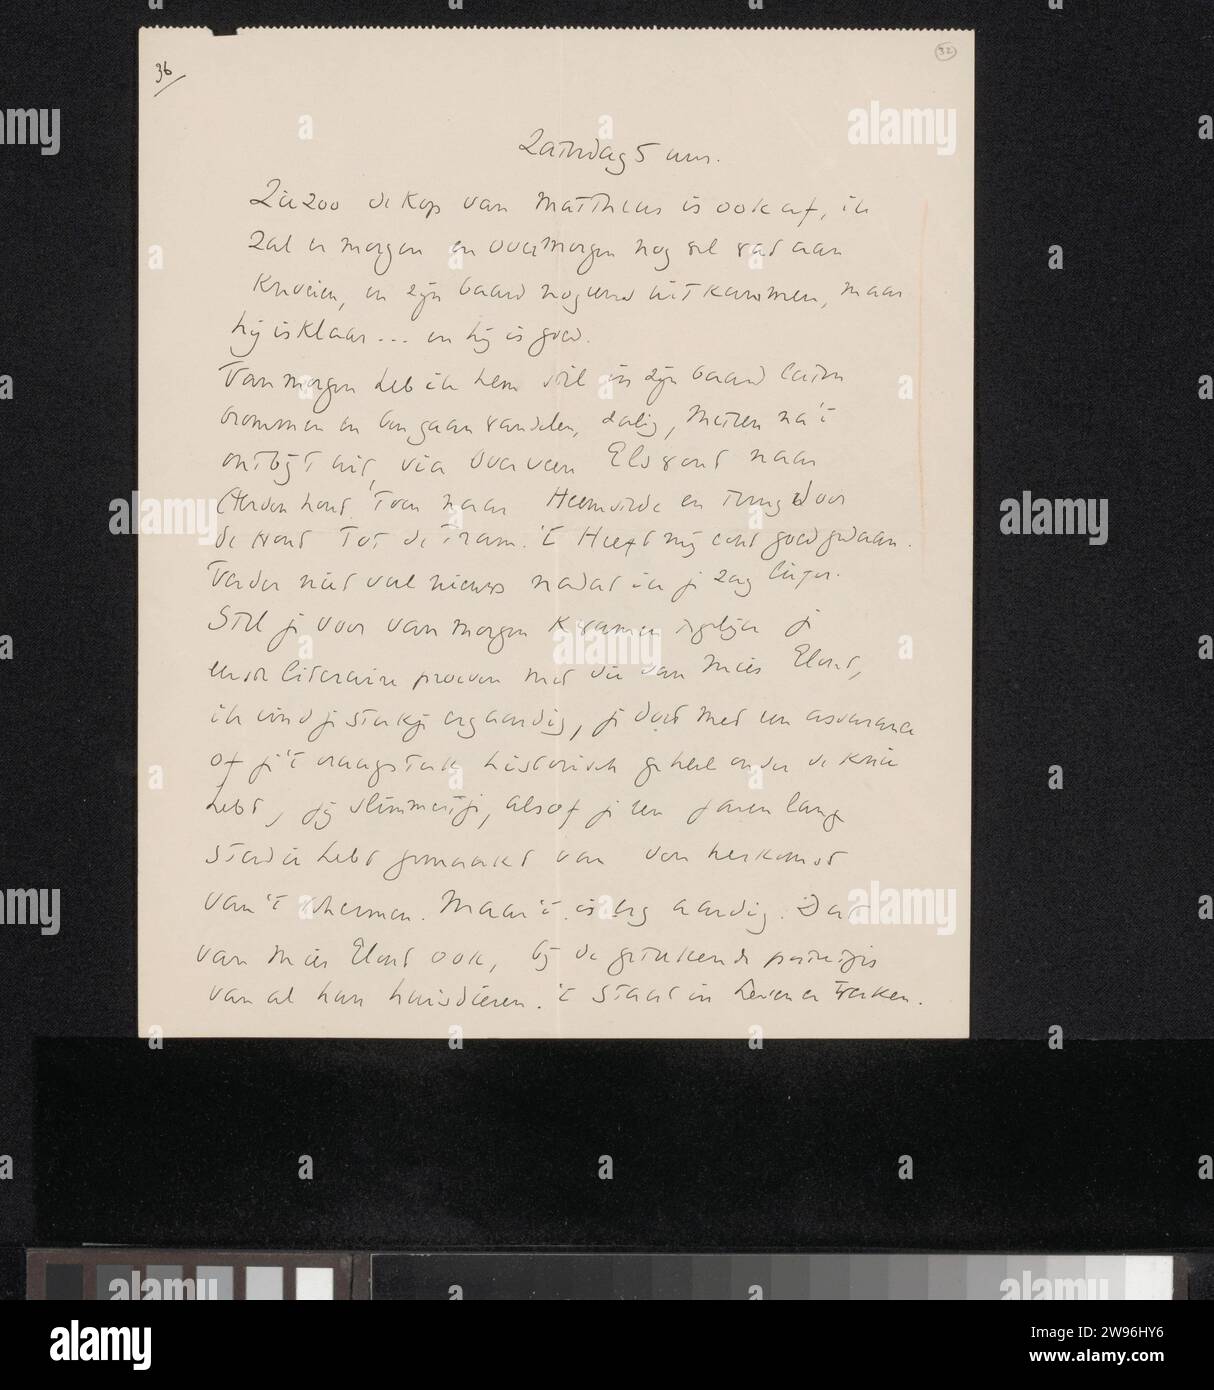 36
32
Zaterdag 5 uur.
Ziezoo de kop van Mattheus is ook af, ik
zal er morgen en overmorgen nog wel wat aan
knoeien, en zijn baard nog eens uitkammen, maar
hij is klaar... en hij is goed.
Van morgen heb ik hem stil in zijn baard laten
brommen en ben gaan wandelen, zalig, meteen na 't
ontbijt uit, via Overveen Elswout naar
Aerdenhout, toen naar Heemstede en terug door
de Hout tot de tram. 't Heeft mij echt goed gedaan.
Verder niet veel nieuws nadat ik je zag
Stel je voor van morgen kwamen tegelijk je
literaire proeven met die van Mies Elout,
ik vind je stukje erg aardig, je doet met een assurance
of je 't vraagstuk historisch geheel onder de knie
hebt, jij slimmertje, alsof je een jaren lang
studie hebt gemaakt van den herkomst
van 't schermen. Maar 't is erg aardig. Dat
van Mies Elout ook, bij de getekende portretjes
van al hun huisdieren. 't Staat in Leven en Werken.
alamy
a
alamy
Image ID: 2W96HY6
www.alamy.com